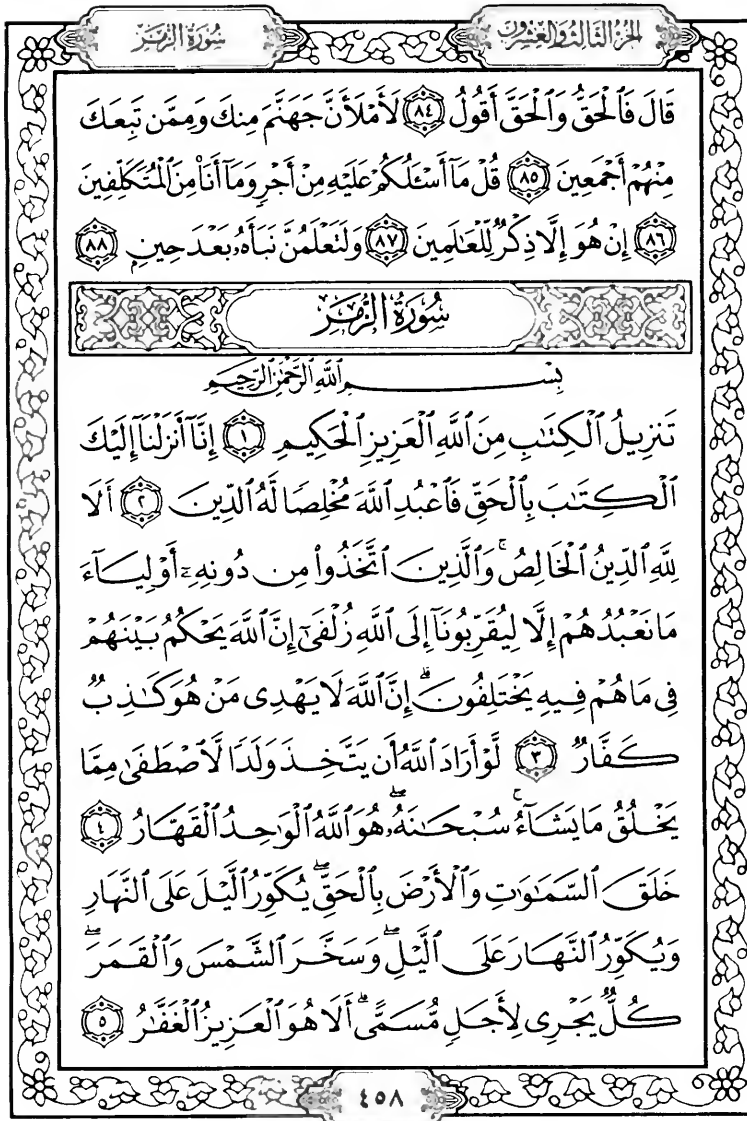 الجزء الثالث والعشرون
سُورَةُ الزُّمَر
قَالَ فَٱلْحَقُّ وَٱلْحَقَّ أَقُولُ ﴿٨٤﴾ لَأَمْلَأَنَّ جَهَنَّمَ مِنكَ وَمِمَّن تَبِعَكَ
مِنْهُمْ أَجْمَعِينَ ﴿٨٥﴾ قُلْ مَآ أَسْـَٔلُكُمْ عَلَيْهِ مِنْ أَجْرٍ وَمَآ أَنَا۠ مِنَ ٱلْمُتَكَلِّفِينَ
﴿٨٦﴾ إِنْ هُوَ إِلَّا ذِكْرٌ لِّلْعَـٰلَمِينَ ﴿٨٧﴾ وَلَتَعْلَمُنَّ نَبَأَهُۥ بَعْدَ حِينٍۭ ﴿٨٨﴾
سُورَةُ الزُّمَر
بِسْمِ ٱللَّهِ ٱلرَّحْمَـٰنِ ٱلرَّحِيمِ
تَنزِيلُ ٱلْكِتَـٰبِ مِنَ ٱللَّهِ ٱلْعَزِيزِ ٱلْحَكِيمِ ﴿١﴾ إِنَّآ أَنزَلْنَآ إِلَيْكَ
ٱلْكِتَـٰبَ بِٱلْحَقِّ فَٱعْبُدِ ٱللَّهَ مُخْلِصًا لَّهُ ٱلدِّينَ ﴿٢﴾ أَلَا
لِلَّهِ ٱلدِّينُ ٱلْخَالِصُ ۚ وَٱلَّذِينَ ٱتَّخَذُوا۟ مِن دُونِهِۦٓ أَوْلِيَآءَ
مَا نَعْبُدُهُمْ إِلَّا لِيُقَرِّبُونَآ إِلَى ٱللَّهِ زُلْفَىٰٓ إِنَّ ٱللَّهَ يَحْكُمُ بَيْنَهُمْ
فِى مَا هُمْ فِيهِ يَخْتَلِفُونَ ۗ إِنَّ ٱللَّهَ لَا يَهْدِى مَنْ هُوَ كَـٰذِبٌ
كَفَّارٌ ﴿٣﴾ لَّوْ أَرَادَ ٱللَّهُ أَن يَتَّخِذَ وَلَدًا لَّٱصْطَفَىٰ مِمَّا
يَخْلُقُ مَا يَشَآءُ ۚ سُبْحَـٰنَهُۥ ۖ هُوَ ٱللَّهُ ٱلْوَٰحِدُ ٱلْقَهَّارُ ﴿٤﴾
خَلَقَ ٱلسَّمَـٰوَٰتِ وَٱلْأَرْضَ بِٱلْحَقِّ ۖ يُكَوِّرُ ٱلَّيْلَ عَلَى ٱلنَّهَارِ
وَيُكَوِّرُ ٱلنَّهَارَ عَلَى ٱلَّيْلِ ۖ وَسَخَّرَ ٱلشَّمْسَ وَٱلْقَمَرَ ۖ
كُلٌّ يَجْرِى لِأَجَلٍ مُّسَمًّى ۗ أَلَا هُوَ ٱلْعَزِيزُ ٱلْغَفَّـٰرُ ﴿٥﴾
٤٥٨